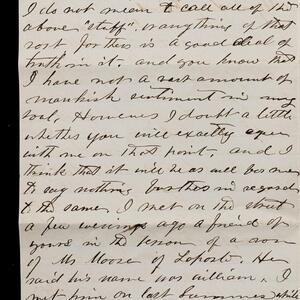 I do not mean to call all of the
above "stuff", or anything of that
sort for there is a good deal of
truth in it. and you know that
I have not a vast amount of
mankish sentiment in my
soul, However I doubt a little
whether you will exactly agree
with me on that point, and I
think that it will be as well for me
to say nothing further in regard
to the same. I met on the street
a few evenings ago a friend of
yours in the person of a son
of Mr Moore of Laporte. He
said his name was William. I
met him on last Summer while